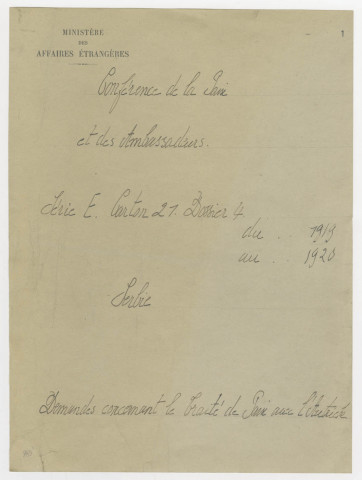 MINISTÈRE
DES
AFFAIRES ÉTRANGÈRES
1
Conférence de la Paix
et des Ambassadeurs.
Série E. Carton 21. Dossier 4
du . . 1919
au . . 1920
Serbie
Demandes concernant le Traité de Paix avec l'Autriche